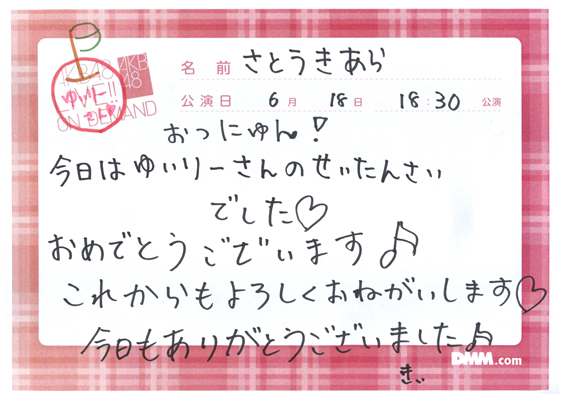 AKB48 AKB48
LIVE!!
ON DEMAND
名前 さとうきあら
公演日 6月 18日 18:30 公演
おっにゅん!
今日はゆいりーさんのせいたんさい
でした♡
おめでとうございます♪
これからもよろしくおねがいします♡
今日もありがとうございました♪
DMM.com